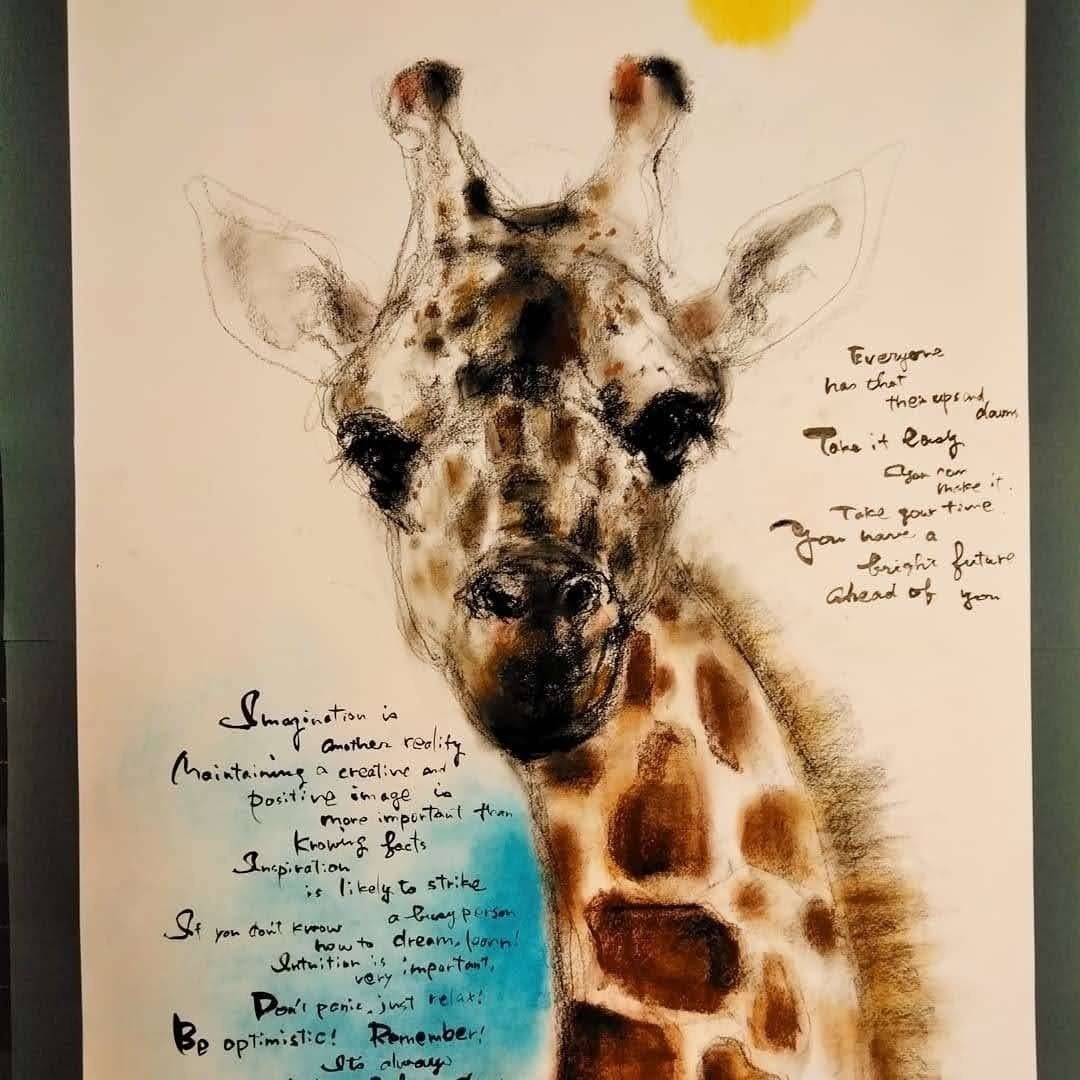 Everyone
has that
their ups and
downs
Take it easy
you can
make it.
Take your time.
You have a
bright future
ahead of you
Imagination is
another reality
Maintaining a creative and
positive image is
more important than
knowing facts
Inspiration
is likely to strike
a busy person
If you don't know
how to dream, learn!
Intuition is
very important,
Don't panic, just relax!
Be optimistic! Remember!
It's always